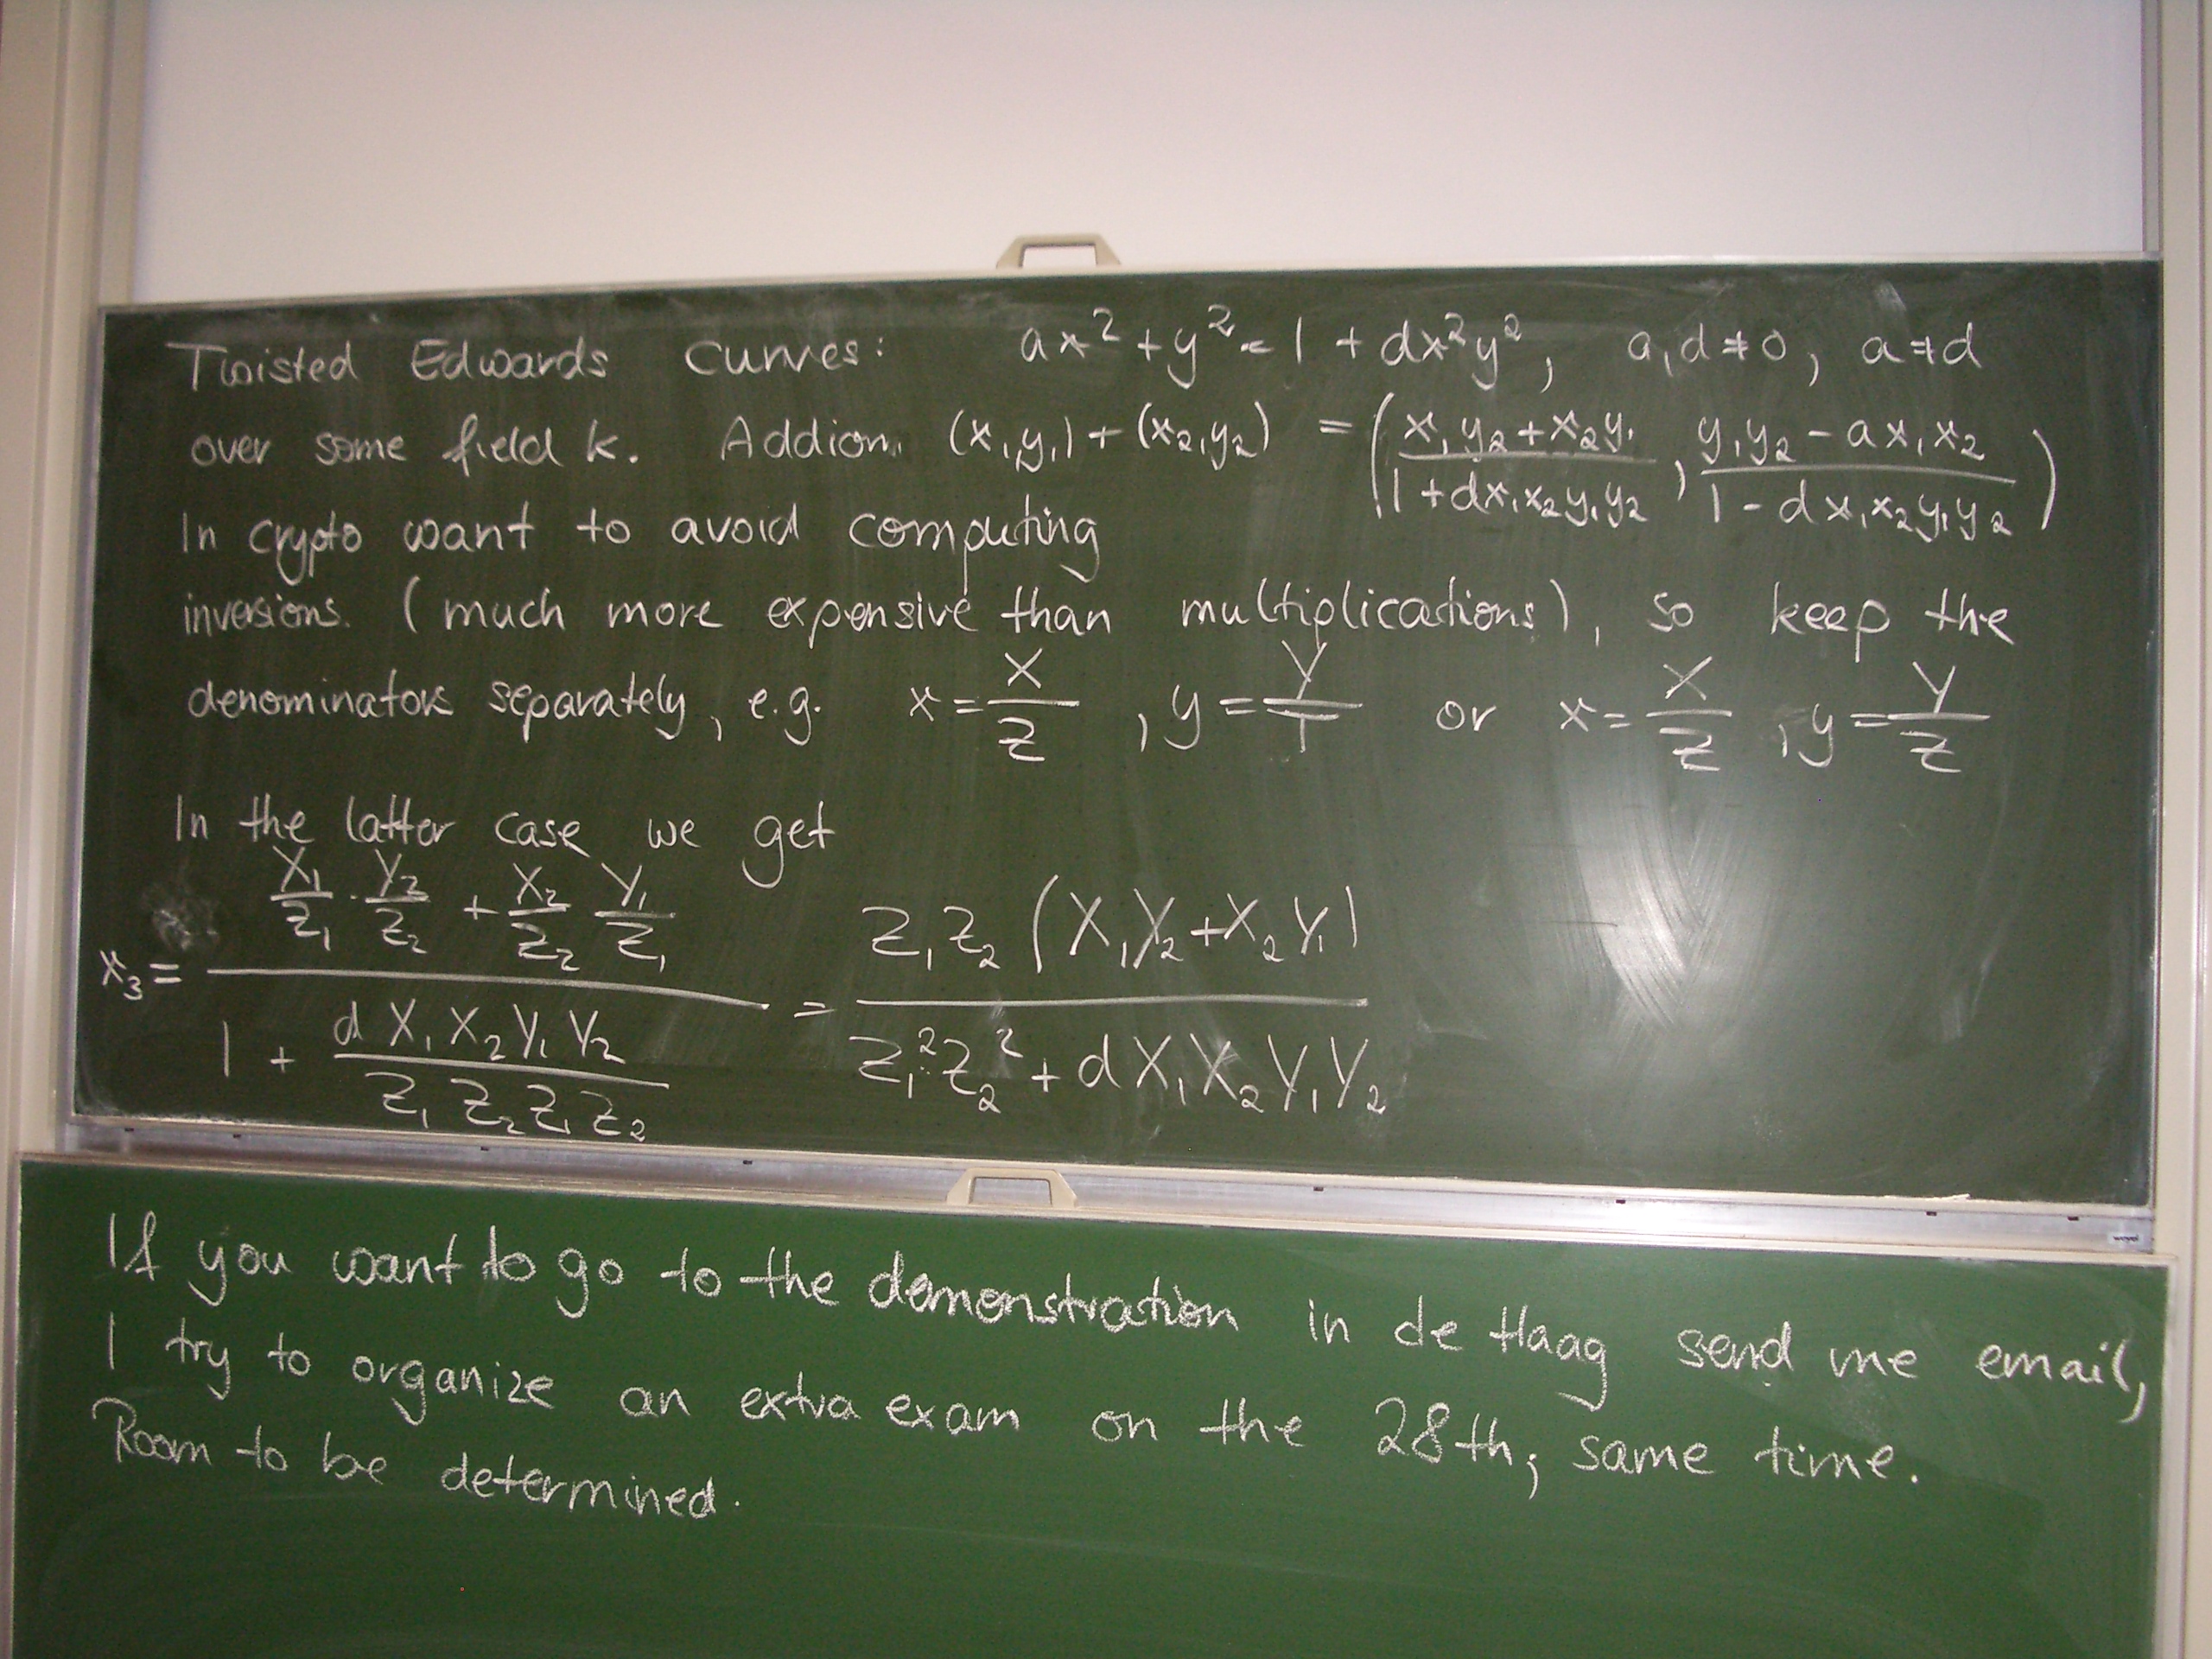 Twisted Edwards curves: ax² + y² = 1 + dx²y², a,d≠0, a≠d
over some field k. Addion (x₁,y₁) + (x₂,y₂) = ( (x₁y₂+x₂y₁)/(1+dx₁x₂y₁y₂) , (y₁y₂-ax₁x₂)/(1-dx₁x₂y₁y₂) )
In crypto want to avoid computing
inversions. (much more expensive than multiplications), so keep the
denominators separately, e.g. x = X/Z , y = Y/T or x = X/Z , y = Y/Z
In the latter case we get
x₃ = (X₁/Z₁ · Y₂/Z₂ + X₂/Z₂ Y₁/Z₁)/(1 + dX₁X₂Y₁Y₂/(Z₁Z₂Z₁Z₂)) = Z₁Z₂(X₁Y₂+X₂Y₁)/(Z₁²Z₂² + dX₁X₂Y₁Y₂)
If you want to go to the demonstration in de Haag send me email,
I try to organize an extra exam on the 28th; same time.
Room to be determined.